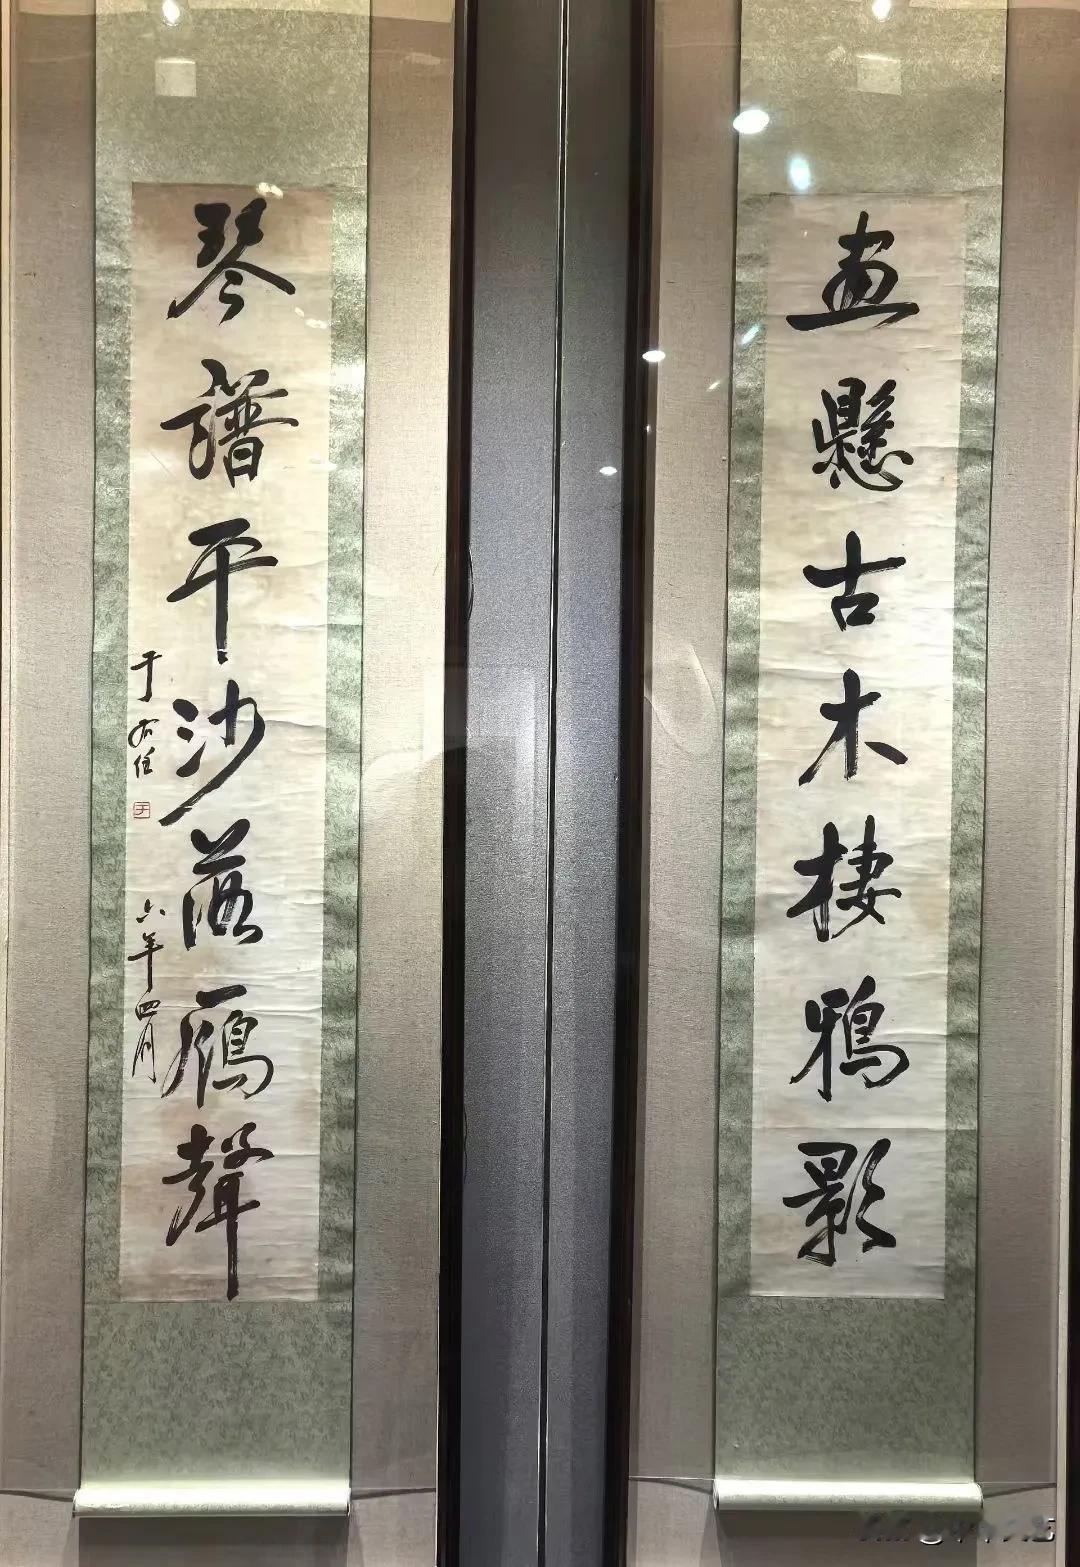 畫懸古木棲鴉影
琴譜平沙落雁聲
于右任
六年四月